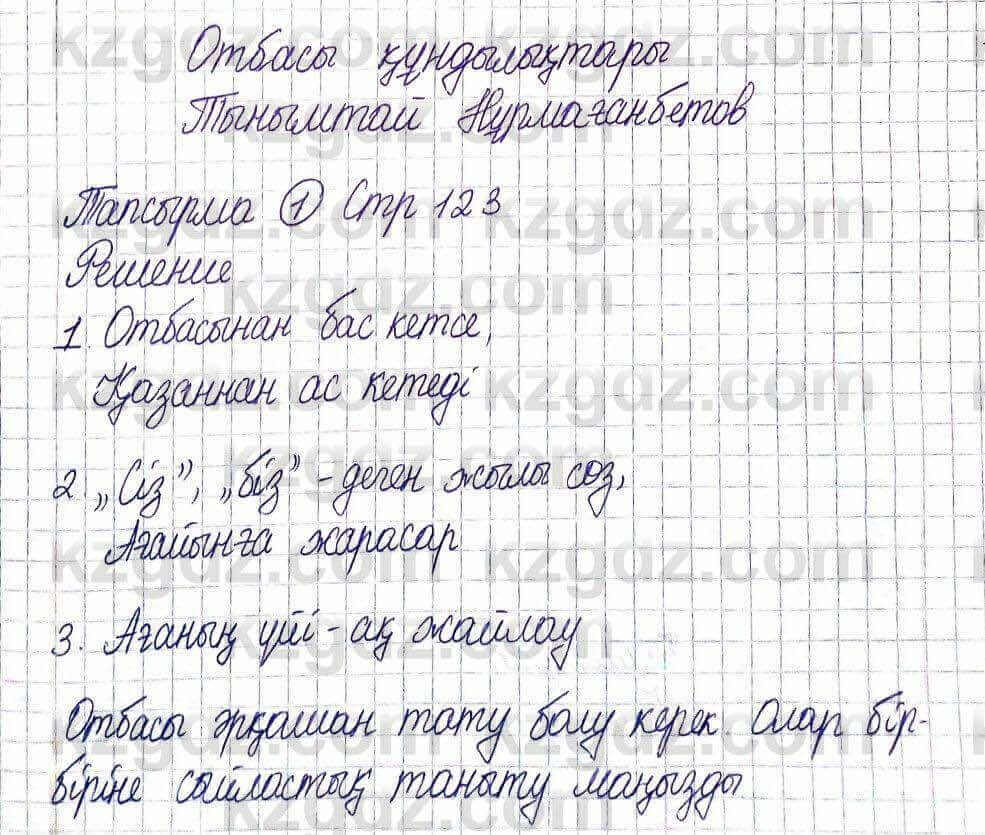 Отбасы құндылықтары
Тынымтай Нұрмағанбетов
Тапсырма ① Стр 123
Решение
1. Отбасынан бас кетсе,
Қазаннан ас кетеді
2. „Сіз”, „біз” - деген жылы соз,
Ағайынға жарасар
3. Ағаның үйі - ақ жайлау
Отбасы әрқашан тату болу керек. Олар бір-
біріне сыйластық таныту маңызды